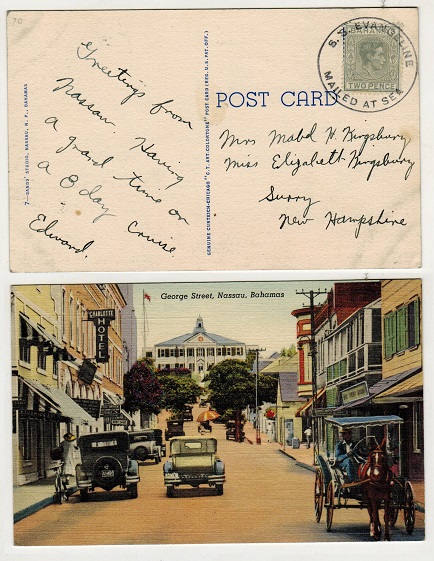 S.S. EVANGELINE
MAILED AT SEA
BAHAMAS
TWO PENCE
POST CARD
"Greetings from
Nassau. Having
a grand time on
a 8 day cruise.
Edward.
7—DANDS' STUDIO, NASSAU, N. P., BAHAMAS
GENUINE CURTEICH-CHICAGO "C.T. ART-COLORTONE" POST CARD (REG. U.S. PAT. OFF.)
Mrs Mabel H Kingsbury
Miss Elizabeth Kingsbury
Surry
New Hampshire
George Street, Nassau, Bahamas
CHARLOTTE
HOTEL